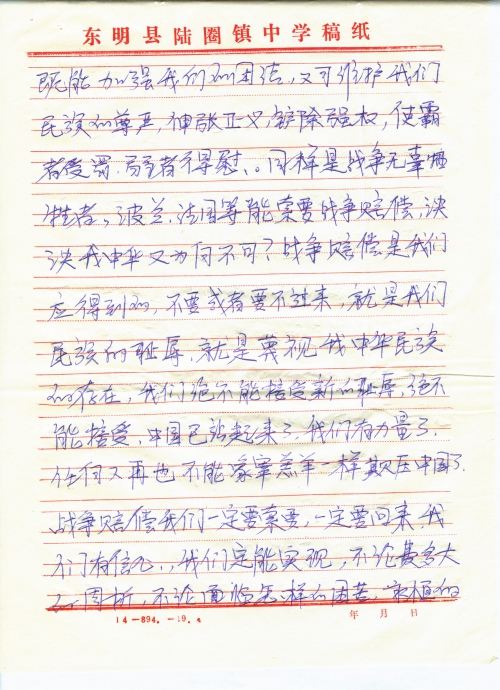 东明县陆圈镇中学稿纸
既能加强我们的团结,又可维护我们
民族的尊严,伸张正义,铲除强权,使霸
者受罚.弱者得慰、。同样是战争无辜牺
牲者。波兰、法国等能索要战争赔偿,泱
泱我中华又为何不可?战争赔偿是我们
应得到的,不要或者要不过来,就是我们
民族的耻辱.就是蔑视我中华民族
的存在,我们绝不能接受新的耻辱.绝不
能接受.中国已站起来了.我们有力量了.
任何人再也不能像宰羔羊一样欺压中国了.
战争赔偿我们一定要索要,一定要回来.我
们有信心,我们定能实现,不论费多大
周折,不论面临怎样的困苦.
14-894.-19.
年 月 日